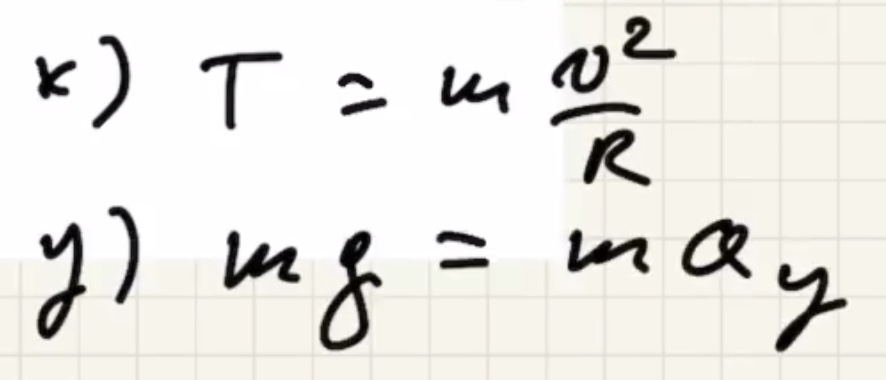 x) T = m v²/R
y) mg = m a_y